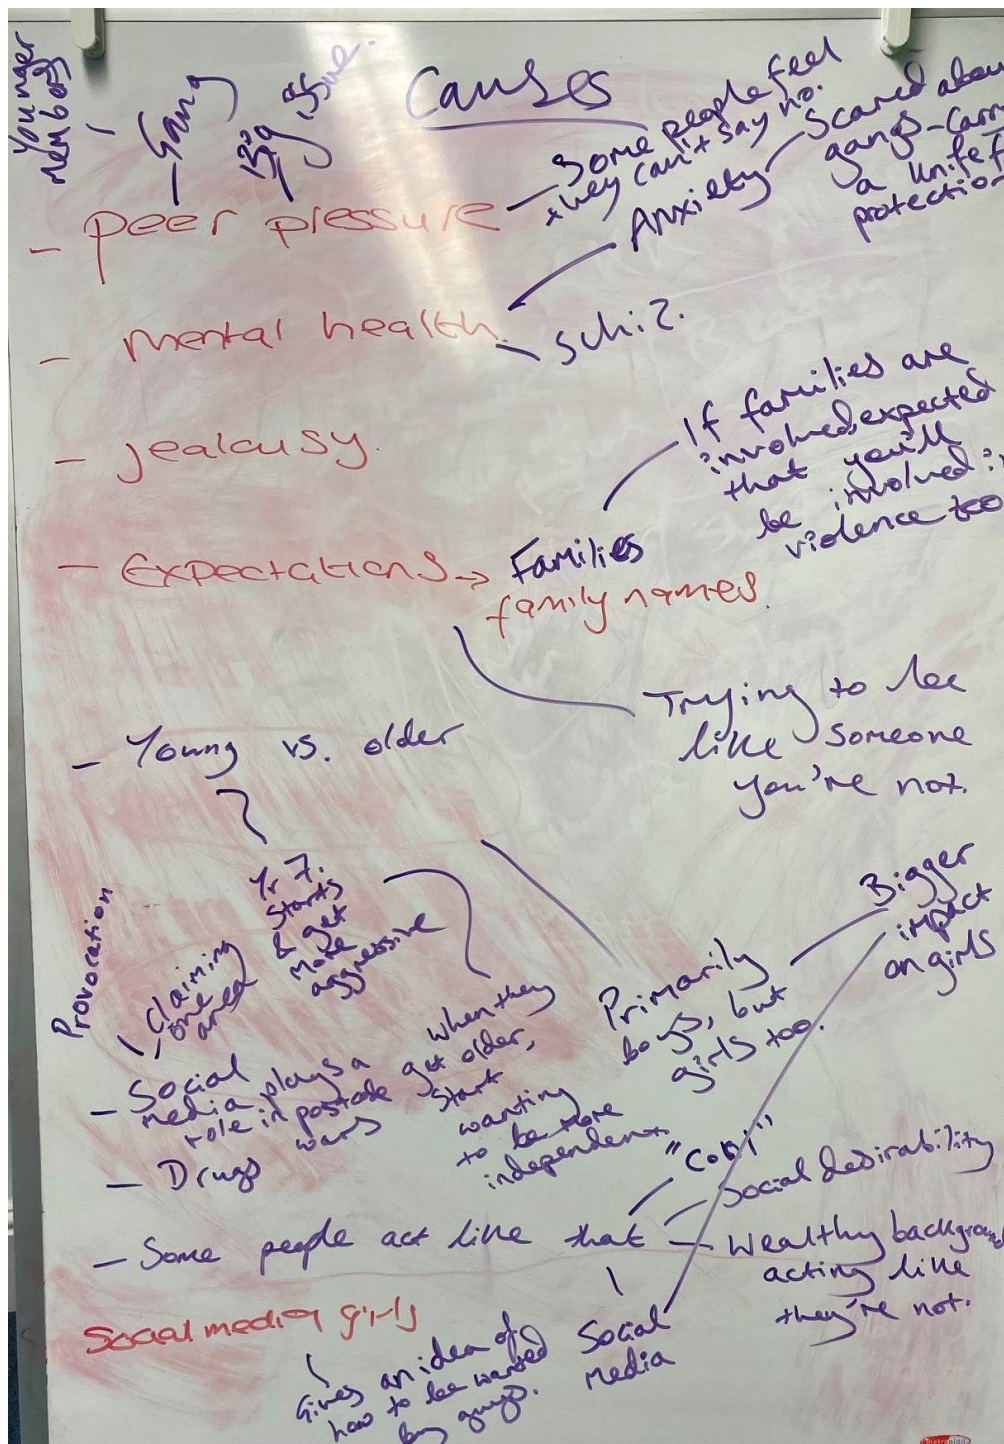 Causes
Younger
Members
Gang
Big issue.
- peer pressure
Some people feel
they can't say no.
Anxiety
Scared about
gangs - carry
a knife f
protection
- Mental health.
Schiz.
- jealousy.
- Expectations → Families
family names.
If families are
involved, expected
that you'll
be involved i
violence too
Trying to be
like someone
you're not.
- Young vs. older
Yr 7.
Starts
& get
more
aggressive
When they
get older,
start
wanting
to be more
independent.
Primarily
boys, but
girls too.
Bigger
impact
on girls
Provocation
Claiming
one
area
- Social
media plays a
role in postcode
wars
- Drugs
- Some people act like that
"Cool"
Social desirability
Wealthy background
acting like
they're not.
Social
media
Social media girls
Gives an idea of
how to be wanted
by guys.